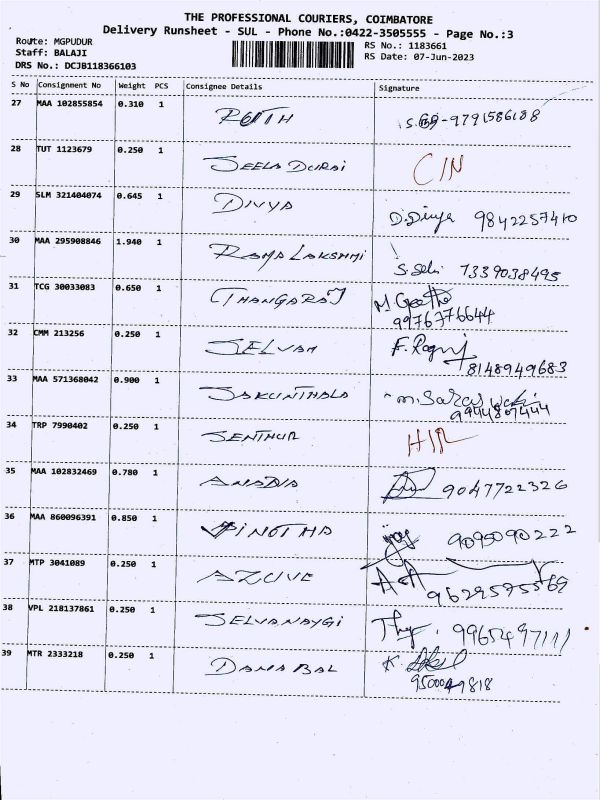 THE PROFESSIONAL COURIERS, COIMBATORE
Delivery Runsheet - SUL - Phone No.:0422-3505555 - Page No.:3
Route: MGPUDUR
RS No.: 1183661
Staff: BALAJI
RS Date: 07-Jun-2023
DRS No.: DCJB118366103
S No Consignment No Weight PCS Consignee Details Signature
27 MAA 102855854 0.310 1 9791586188
28 TUT 1123679 0.250 1 SEELA DURAI C/N
29 SLM 321404074 0.645 1 DIVYA D.Divya 9842257410
30 MAA 295908846 1.940 1 RAMA LAKSHMI S.Selvi 7339038495
31 TCG 30033083 0.650 1 THANGARAJ M.Geetha
9976376644
32 CMM 213256 0.250 1 SELVAM
8148949683
33 MAA 571368042 0.900 1 SAKUNTHALA
9944807444
34 TRP 7990402 0.250 1 SENTHUR
35 MAA 102832469 0.780 1 9047722326
36 MAA 860096391 0.850 1 VINOTHA 9095090222
37 MTP 3041089 0.250 1
38 VPL 218137861 0.250 1 SELVANAYGI
39 MTR 2333218 0.250 1 DANABAL K.
9500049818